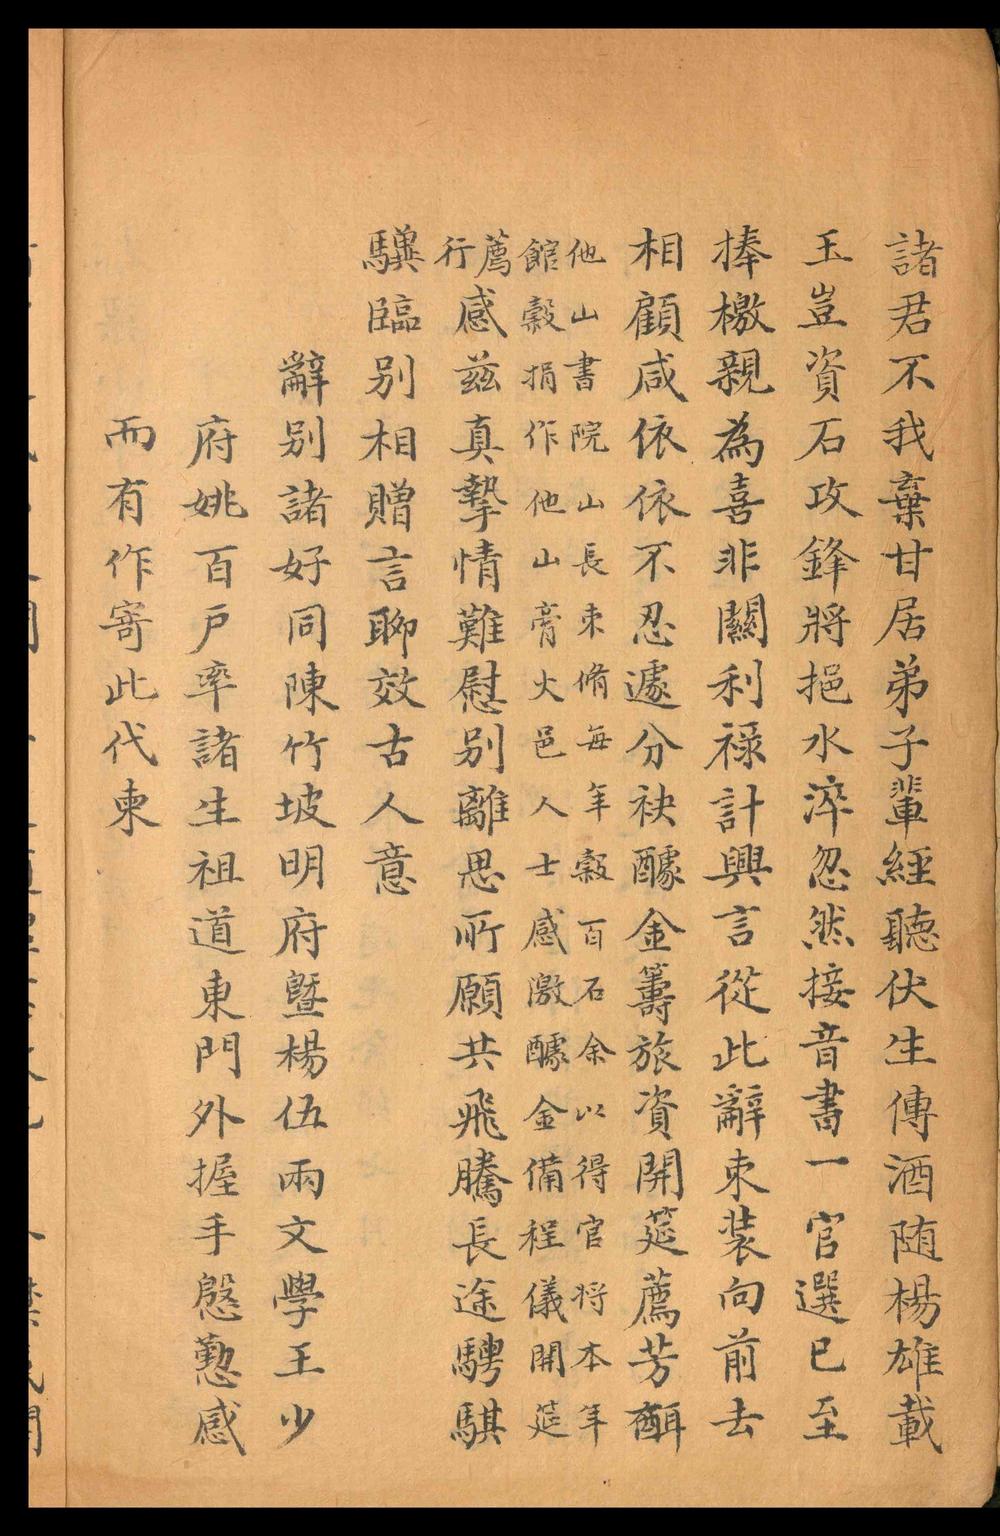 諸君不我棄甘居弟子輩經聽伏生傳酒随楊雄載
玉豈資石攻鋒將挹水淬忽然接音書一官選已至
捧檄親為喜非關利祿計興言從此辭束装向前去
相顧咸依依不忍遽分袂醵金籌旅資開筵薦芳酎
他山書院山長束脩每年穀百石余以得官将本年
館穀捐作他山膏火邑人士感激醵金備程儀開筵
薦
行
感兹真摯情難慰别離思所願共飛騰長途騁騏
驥臨别相贈言聊效古人意
辭别諸好同陳竹坡明府曁楊伍兩文學王少
府姚百戶率諸生祖道東門外握手慇懃感
而有作寄此代柬